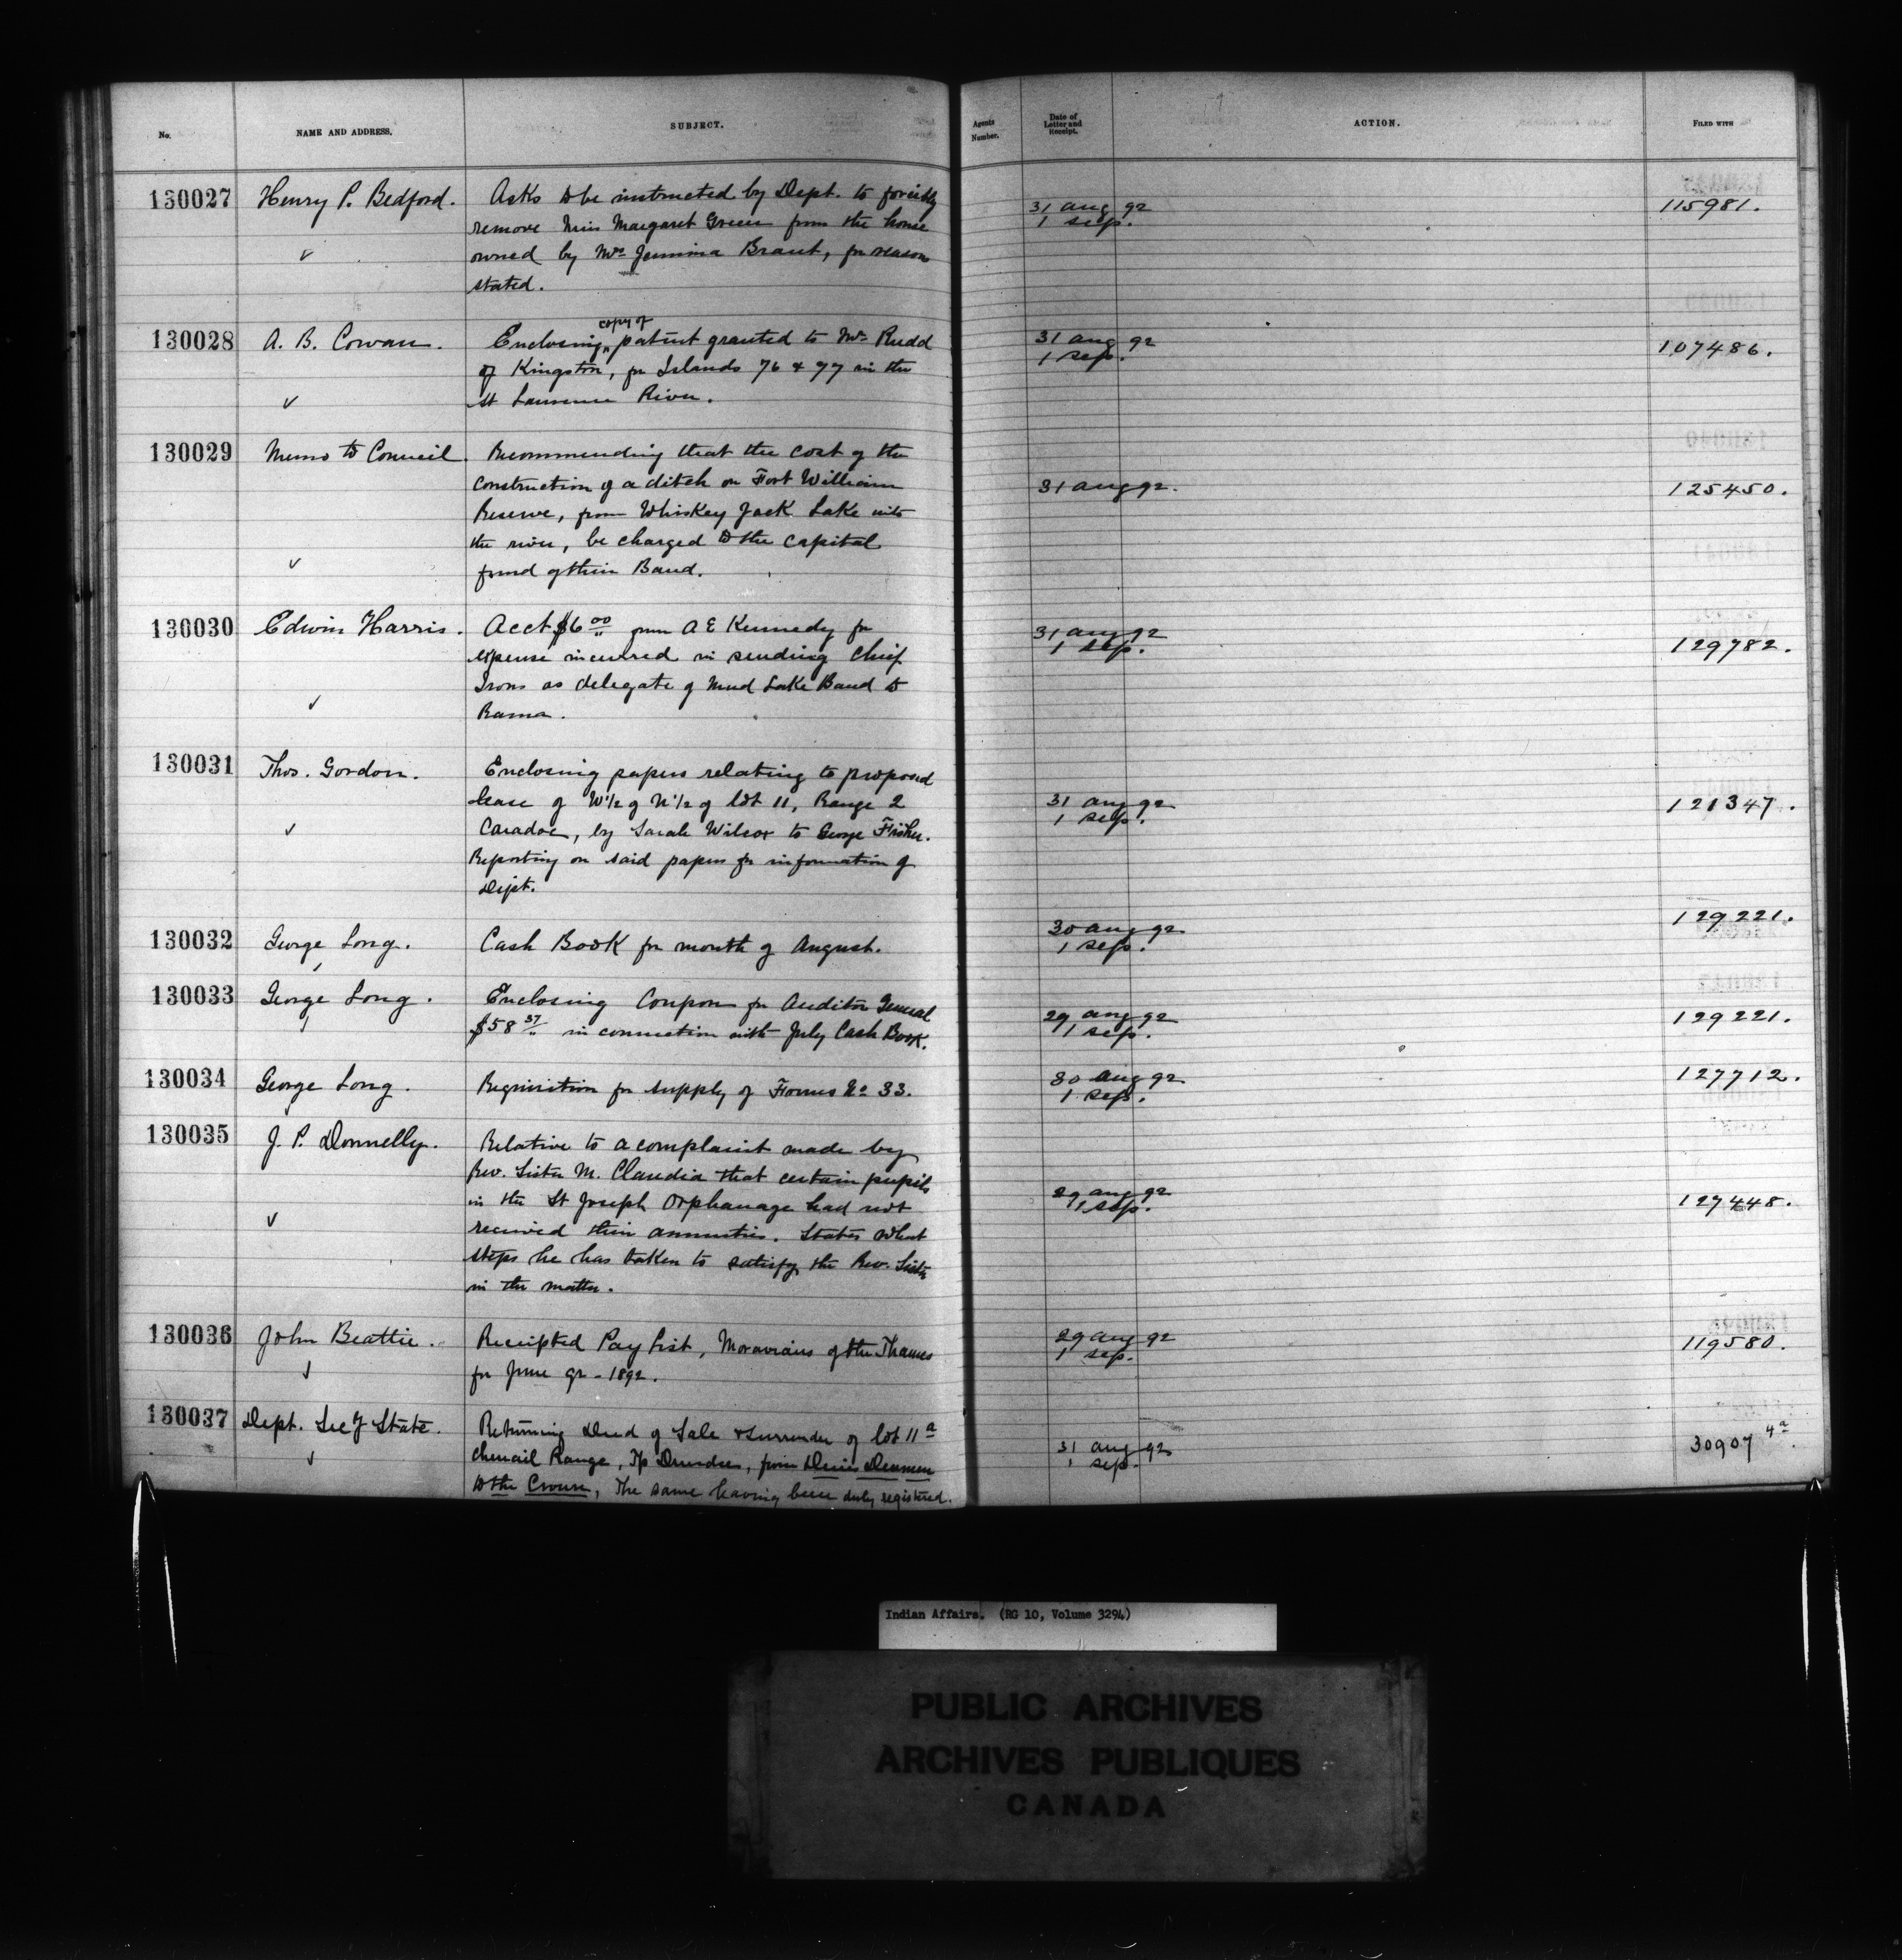 No.
NAME AND ADDRESS.
SUBJECT.
Agents Number.
Date of Letter and Receipt.
ACTION.
FILED WITH
130027 Henry P. Bedford. Asks to be instructed by Dept. to forcibly
remove Miss Margaret Green from the house
owned by Mrs Jemima Brant, for reason
stated.
31 aug 92
1 sep.
115981.
130028 A. B. Cowan. Enclosing copy of patent granted to Mr Rudd
of Kingston, for Islands 76 & 77 in the
St Lawrence River.
31 aug 92
1 sep.
107486.
130029 Memo to Council. Recommending that the cost of the
construction of a ditch on Fort William
Reserve, from Whiskey Jack Lake into
the river, be charged to the capital
fund of their Band.
31 aug 92.
125450.
130030 Edwin Harris. Acct $6 00/" from A E Kennedy for
expense incurred in sending Chief
Irons as delegate of Mud Lake Band to
Rama.
31 aug 92
1 sep.
129782.
130031 Thos. Gordon. Enclosing papers relating to proposed
lease of W 1/2 of N 1/2 of lot 11, Range 2
Caradoc, by Sarah Wilcox to George Fisher.
Reporting on said papers for information of
Dept.
31 aug 92
1 sep.
121347.
130032 George Long. Cash Book for month of August.
30 aug 92
1 sep.
129221.
130033 George Long. Enclosing Coupon for Auditor General
$58 37/" in connection with July Cash Book.
29 aug 92
1 sep.
129221.
130034 George Long. Requisition for supply of Forms No 33.
30 aug 92
1 sep.
127712.
130035 J. P. Donnelly. Relative to a complaint made by
Rev. Sister M. Claudia that certain pupils
in the St Joseph Orphanage had not
received their annuities. States what
steps he has taken to satisfy the Rev. Sister
in the matter.
29 aug 92
1 sep.
127448.
130036 John Beattie. Receipted Pay list, Moravians of the Thames
for June qr - 1892.
29 aug 92
1 sep.
119580.
130037 Dept. Secy State. Returning Deed of Sale & surrender of lot 11 a
Chenail Range, Tp Dundee, from
to the Crown, The same having been duly registered.
31 aug 92
1 sep.
30907 4a.
Indian Affairs. (RG 10, Volume 3294)
PUBLIC ARCHIVES
ARCHIVES PUBLIQUES
CANADA